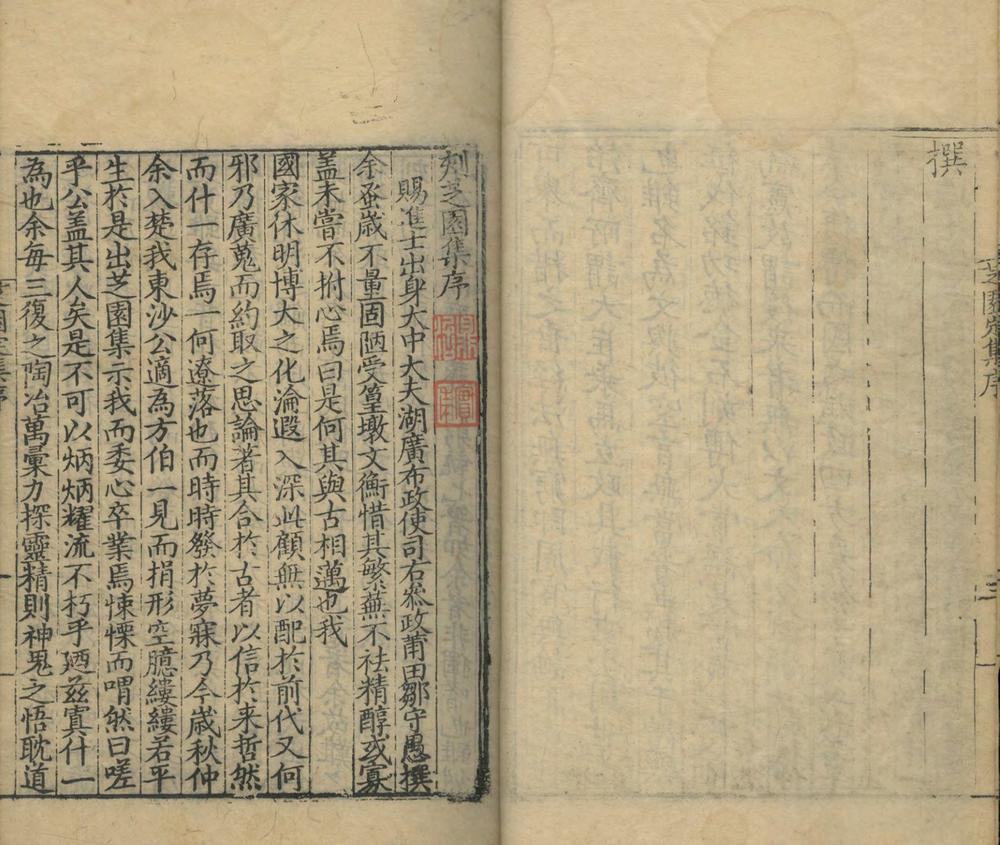 撰
芝園定集序
三
刻芝園集序
賜進士出身大中大夫湖廣布政使司右叅政莆田鄒守愚撰
余蚤歲不量固陋受篁墩文衡惜其繁蕪不袪精醇或寡
盖未嘗不拊心焉曰是何其與古相邁也我
國家休明博大之化淪遐入深此顧無以配於前代又何
邪乃廣蒐而約取之思論著其合於古者以信於来哲然
而什一存焉一何遼落也而時時發於夢寐乃今歲秋仲
余入楚我東沙公適為方伯一見而捐形空臆縷縷若平
生於是出芝園集示我而委心卒業焉悚慄而喟然曰嗟
乎公盖其人矣是不可以炳炳耀流不朽乎廼茲寘什一
為也余每三復之陶冶萬彙力探靈精則神鬼之悟耽道
芝園定集序
一